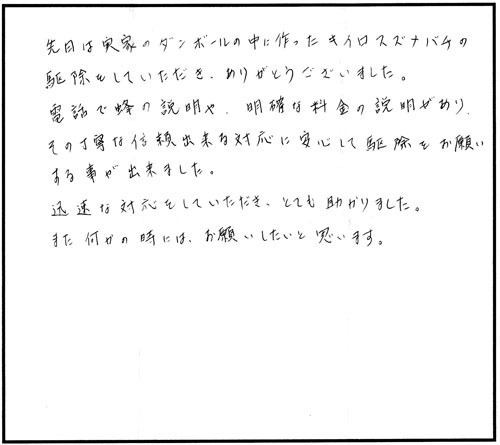 先日は実家のダンボールの中に作ったキイロスズメバチの
駆除をしていただき、ありがとうございました。
電話で蜂の説明や、明確な料金の説明があり、
その丁寧な信頼出来る対応に安心して駆除をお願い
する事が出来ました。
迅速な対応をしていただき、とても助かりました。
また何かの時には、お願いしたいと思います。